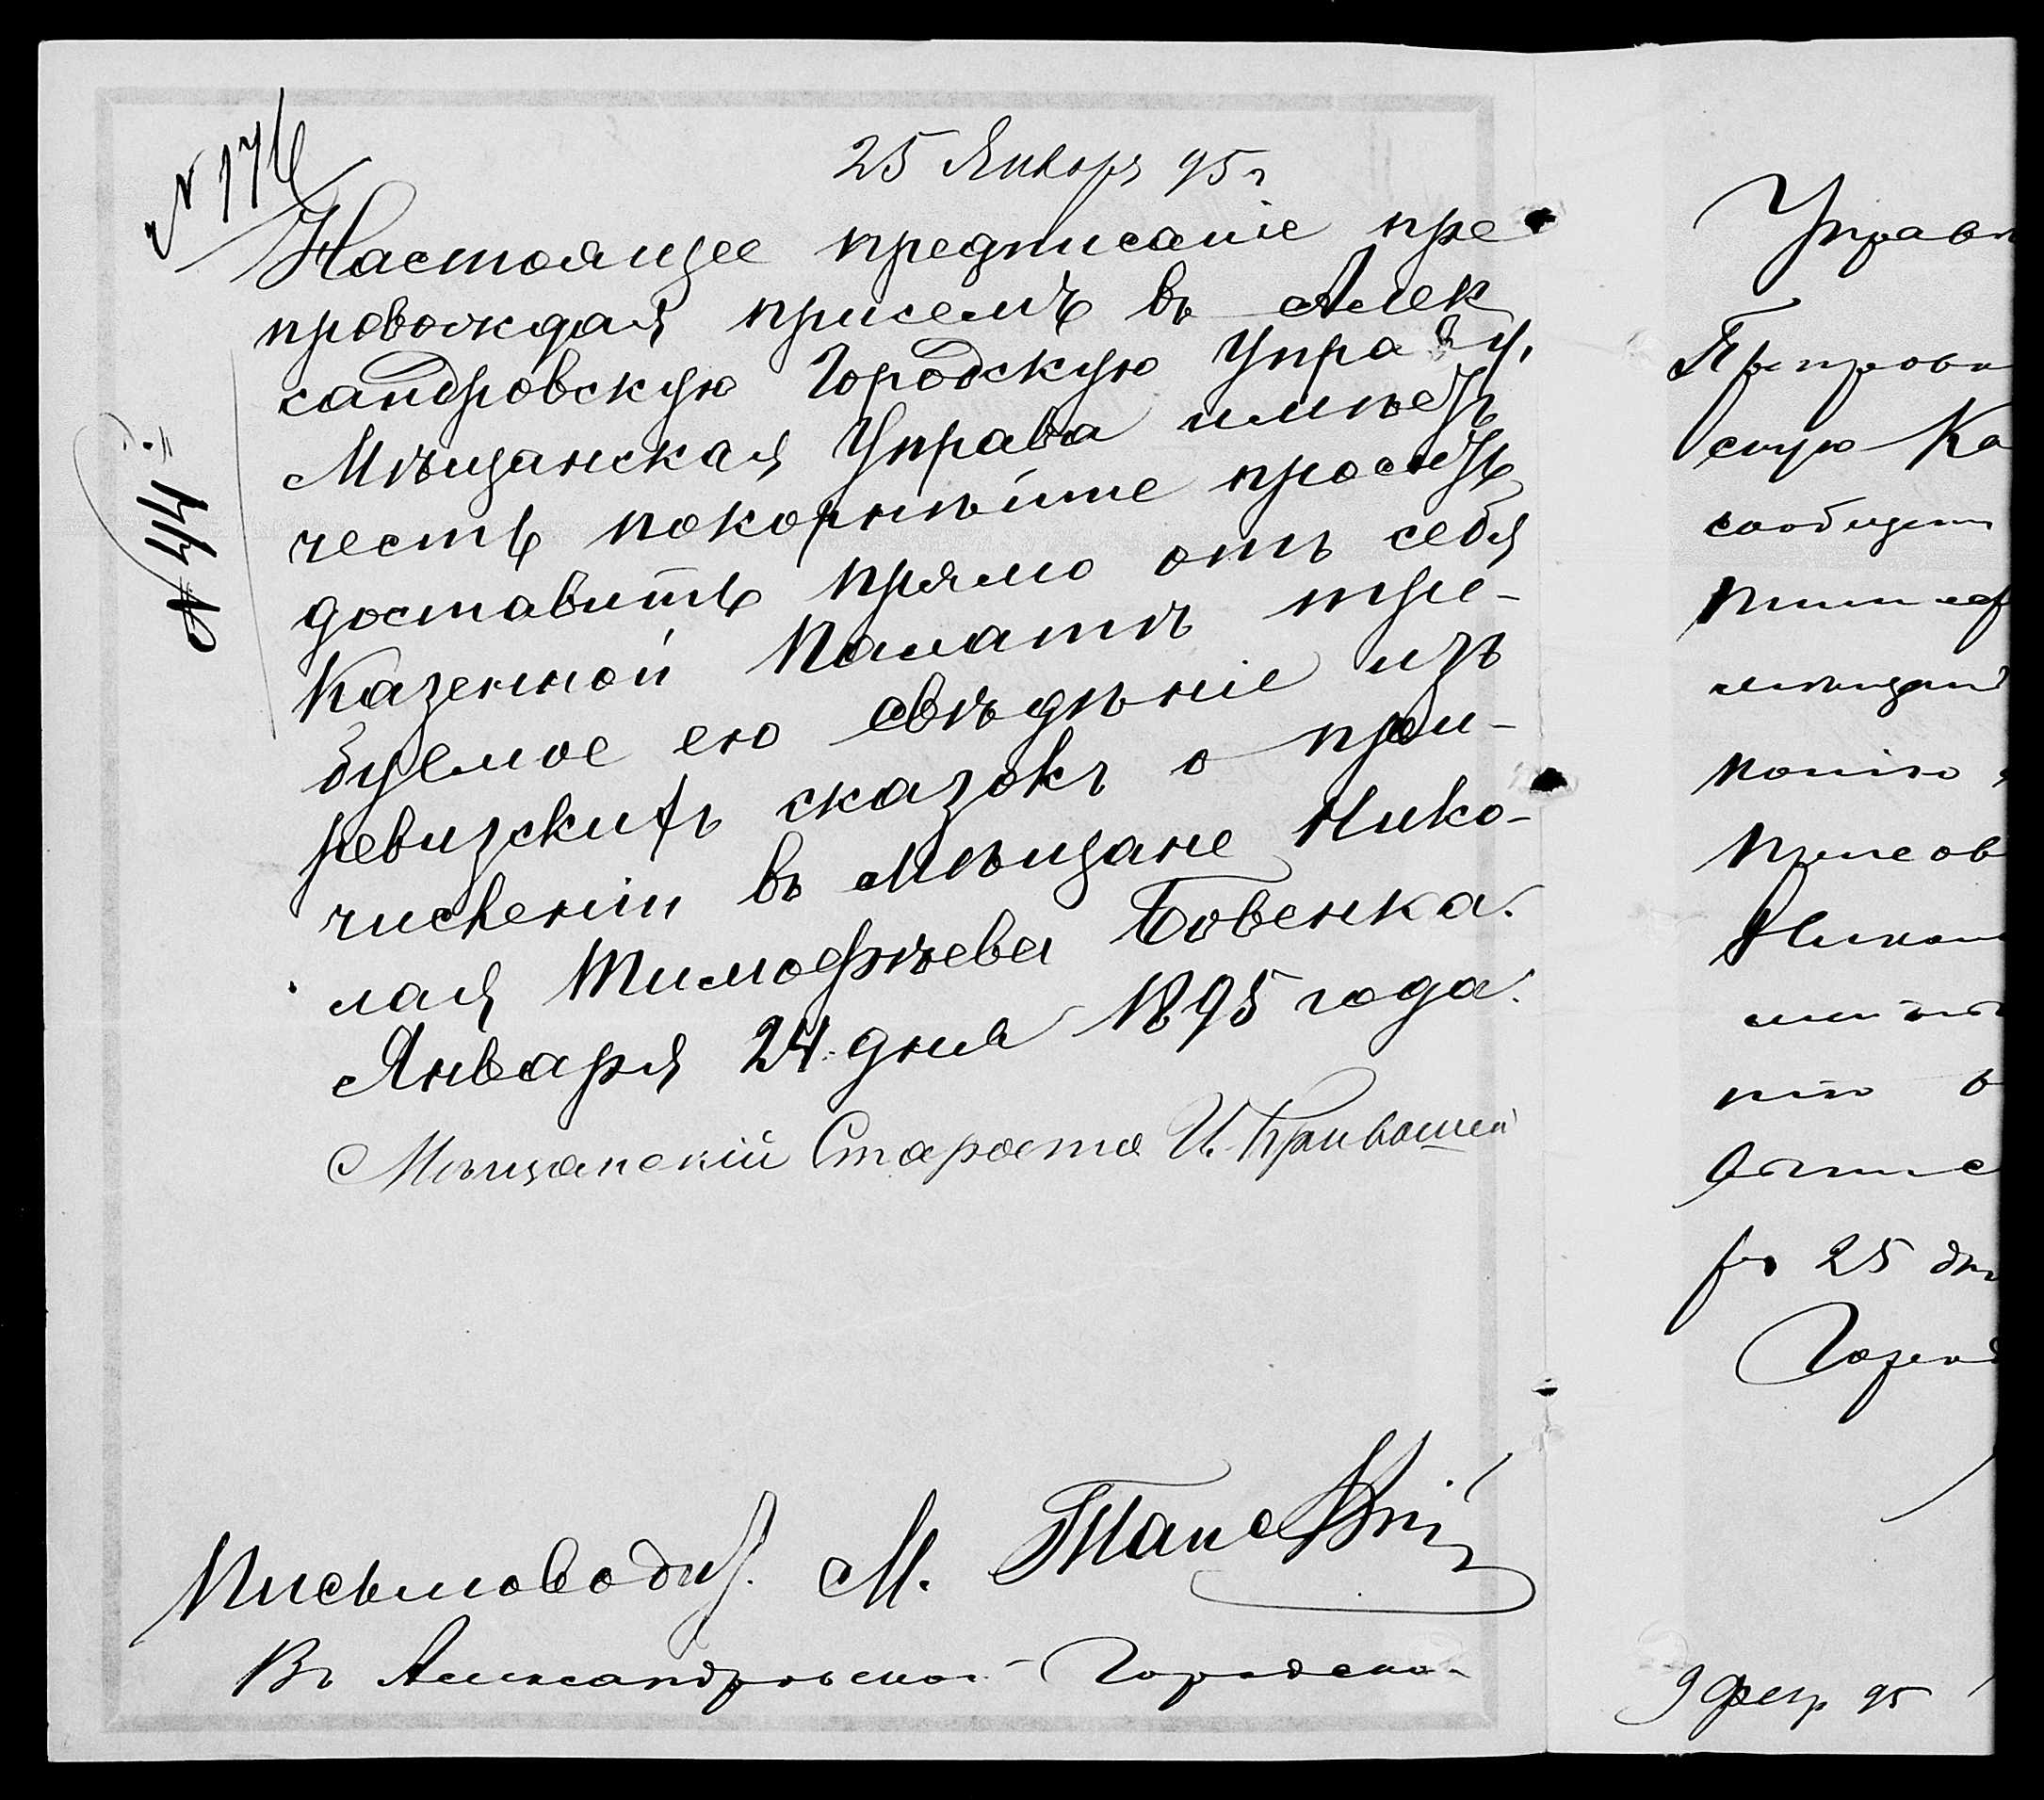 № 176
25 Января 95 г
Настоящее предписаніе пре
провождая присемъ въ Алек
сандровскую Городскую Управу,
Мѣщанская Управа имѣетъ
честь покорнѣйше просить
доставить прямо отъ себя
Казенной Палатѣ тре-
буемое ею свѣдѣніе изъ
ревизскихъ сказокъ о при-
численіи въ Мѣщане Нико-
лая Тимофѣева Бовенка.
Января 24 дня 1895 года.
Мѣщанскій Староста И. Кривошей
Письмоводит. М.
Въ Александровской Городской
№ 44
Управ
Препрово
скую Ка
сообщен
мѣщан
копію
Никол
ря 25 дн
Город
9 февр 95